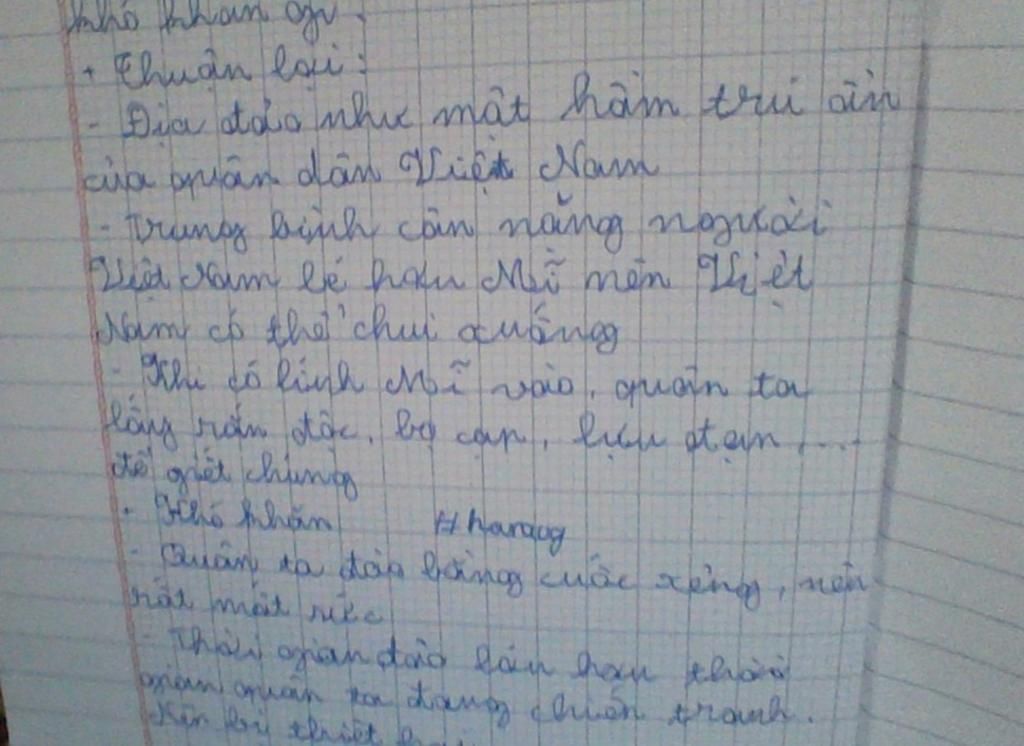 khó khăn gì.
+ Thuận lợi:
- Địa đạo như một hầm trú ẩn
của quân dân Việt Nam
- Trung bình cân nặng người
Việt Nam bé hơn Mĩ nên Việt
Nam có thể chui xuống
- Khi có lính Mĩ vào, quân ta
lấy rắn độc, bọ cạp, lựu đạn ....
để giết chúng
+ Khó khăn #hangog
- Quân ta đào bằng cuốc xẻng, nên
rất mất sức
- Thời gian đào lâu hơn thời
gian quân ta đang chiến tranh.
thiệt